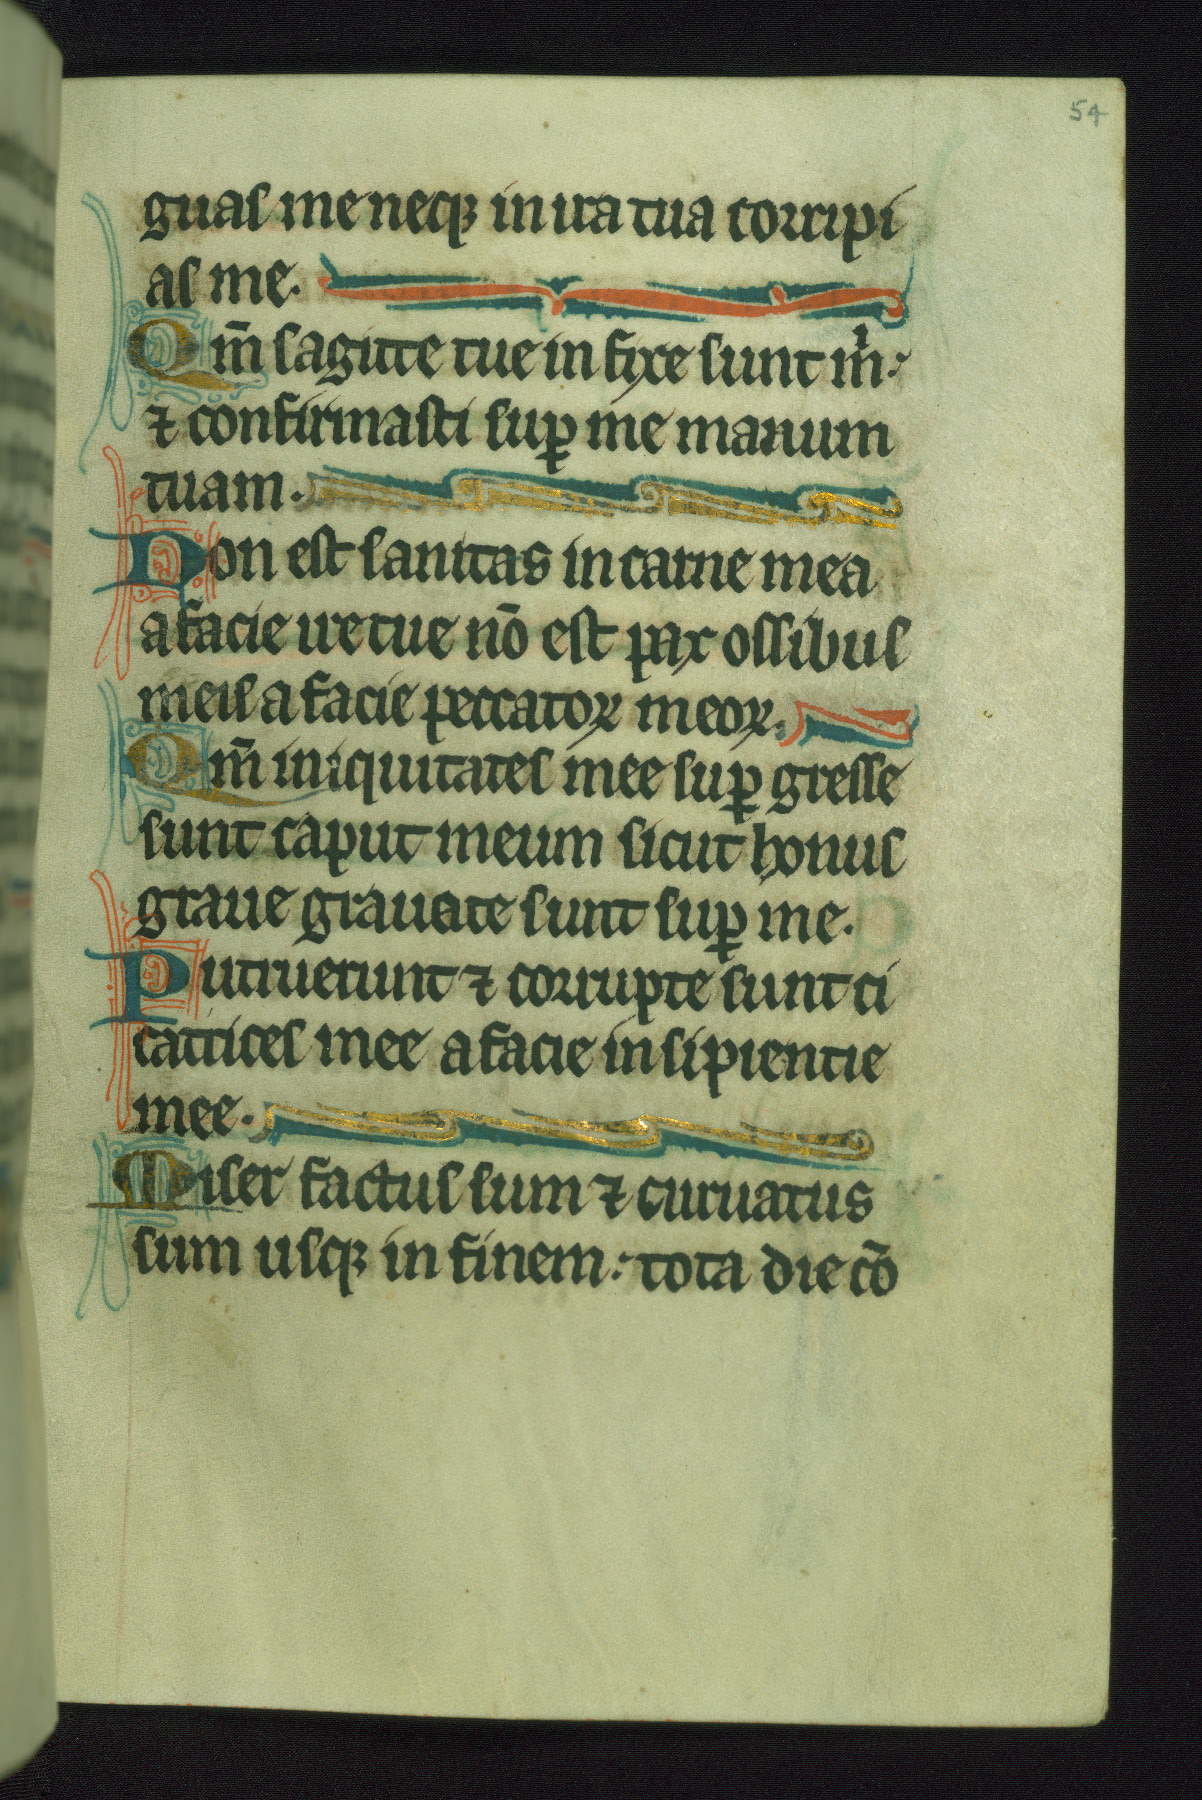 54
guas me neqꝫ in ira tua corripi
as me.
Qm̄ sagitte tue in fixe sunt mͥ.
⁊ confirmasti suꝑ me manum
tuam.
Non est sanitas in carne mea
a facie ire tue nō est pax ossibus
meis a facie peccatoꝝ meoꝝ.
Qm̄ iniquitates mee suꝑ gresse
sunt caput meum sicut honus
graue grauate sunt suꝑ me.
Putruerunt ⁊ corrupte sunt ci
catrices mee a facie in sipientie
mee.
Miser factus sum ⁊ curuatus
sum usqꝫ in finem: tota die cō